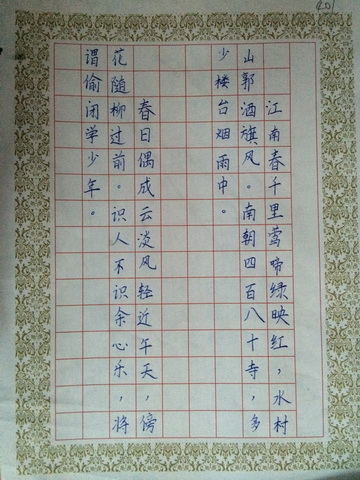 江南春千里莺啼绿映红，水村
山郭酒旗风。南朝四百八十寺，多
少楼台烟雨中。
春日偶成云淡风轻近午天，傍
花随柳过前。识人不识余心乐，将
谓偷闭学少年。